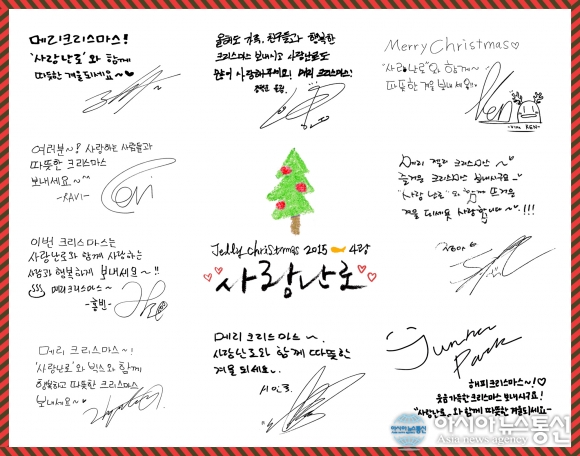 메리크리스마스!
'사랑난로'와 함께
따뜻한 겨울되세요~♡
올해도 가족, 친구들과 행복한
크리스마스 보내시고 사랑난로도
많이 사랑해주세요! 메리 크리스마스!
Merry Christmas♡
"사랑난로"와 함께~
따뜻한 겨울 보내세요!!
Ken
여러분~? 사랑하는 사람들과
따뜻한 크리스마스
보내세요~^^
-RAVI-
메리 메리 크리스마스~
즐거운 크리스마스 보내시구요~
"사랑 난로"와 함께 뜨거운
겨울 되세요 사랑합니다~!!!
이번 크리스마스는
사랑난로와 함께 사랑하는
사람과 행복하게 보내세요~!!
메리크리스마스
-홍빈-
Jelly christmas 2015 4랑
♡♡사랑난로♡♡
메리 크리스마스~!
'사랑난로'와 빅스와 함께
행복하고 따뜻한 크리스마스
보내세요~
메리 크리스마스~.
사랑난로와 함께 따뜻한
겨울 되세요.
Junnie
Park
해피크리스마스~!♡
웃음가득한크리스마스 보내시구요!
"사랑난로"와 함께 따뜻한 겨울되세요~
아시아뉴스통신
Asia news agency